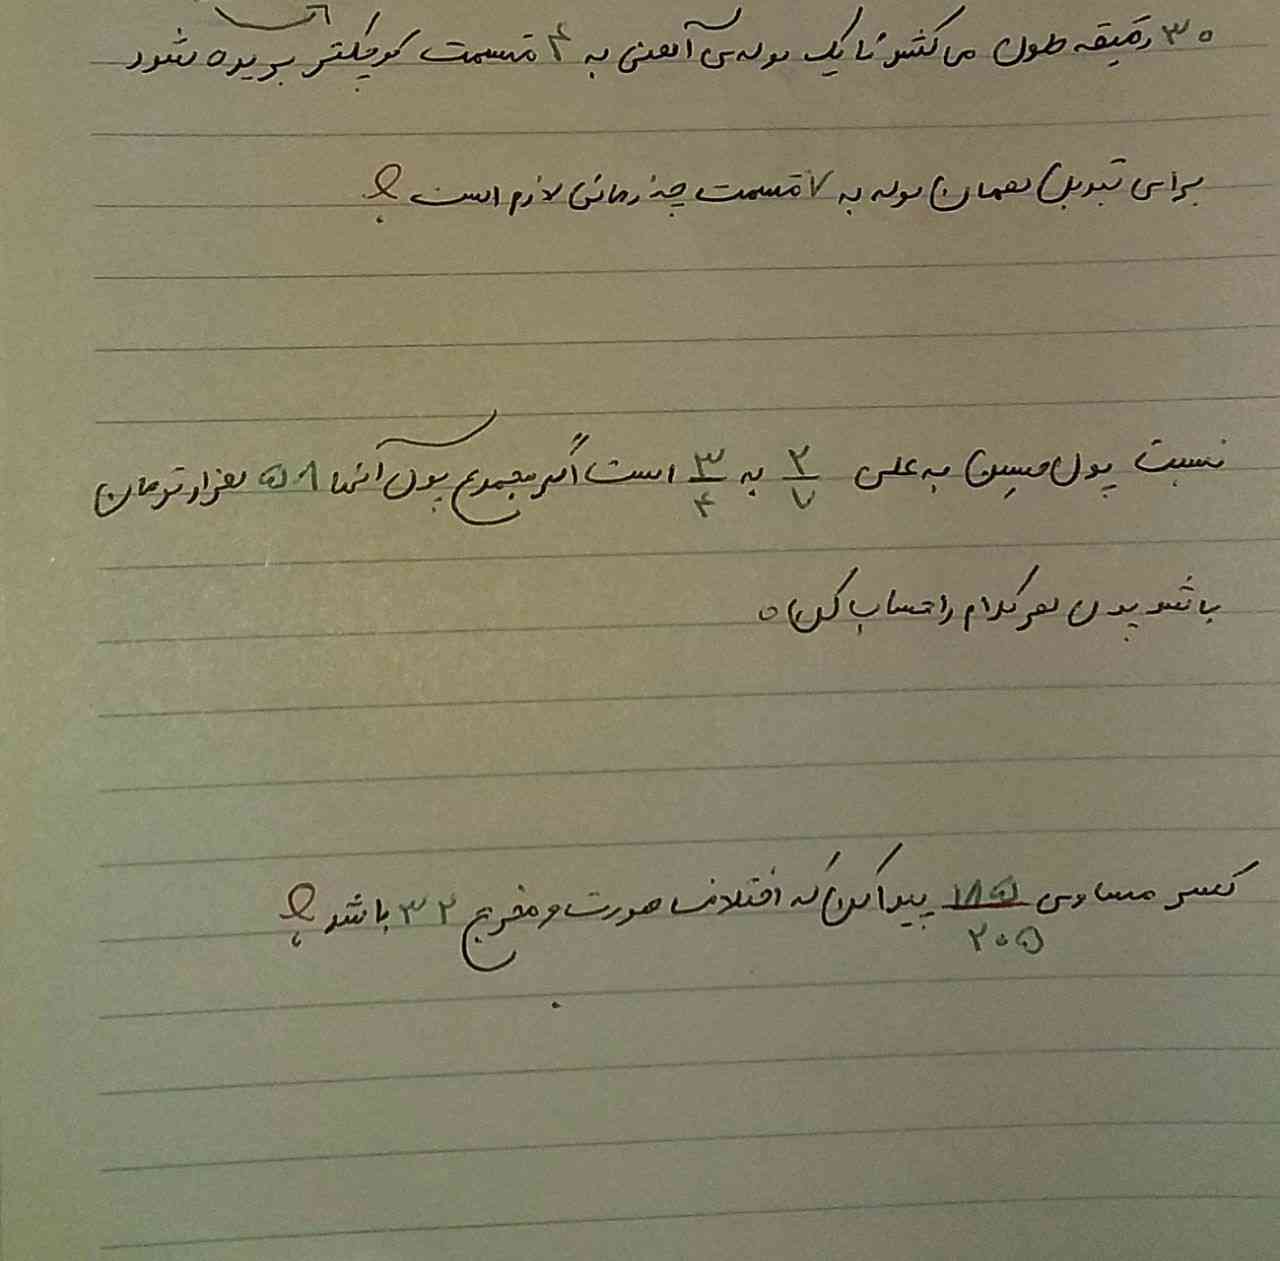 ۳۰ دقیقه طول می کشد تا یک لوله ی آهنی به ۴ قسمت کوچکتر بریده شود
برای تبدیل همان لوله به ۷ قسمت چه زمانی لازم است ؟
نسبت پول حسین به علی ۲/۷ به ۳/۴ است اگر مجموع پول آنها ۵۸ هزار تومان
باشد پول هر کدام را حساب کن.
کسر مساوی ۱۸۵/۲۰۵ پیدا کن که اختلاف صورت و مخرج ۳۲ باشد ؟